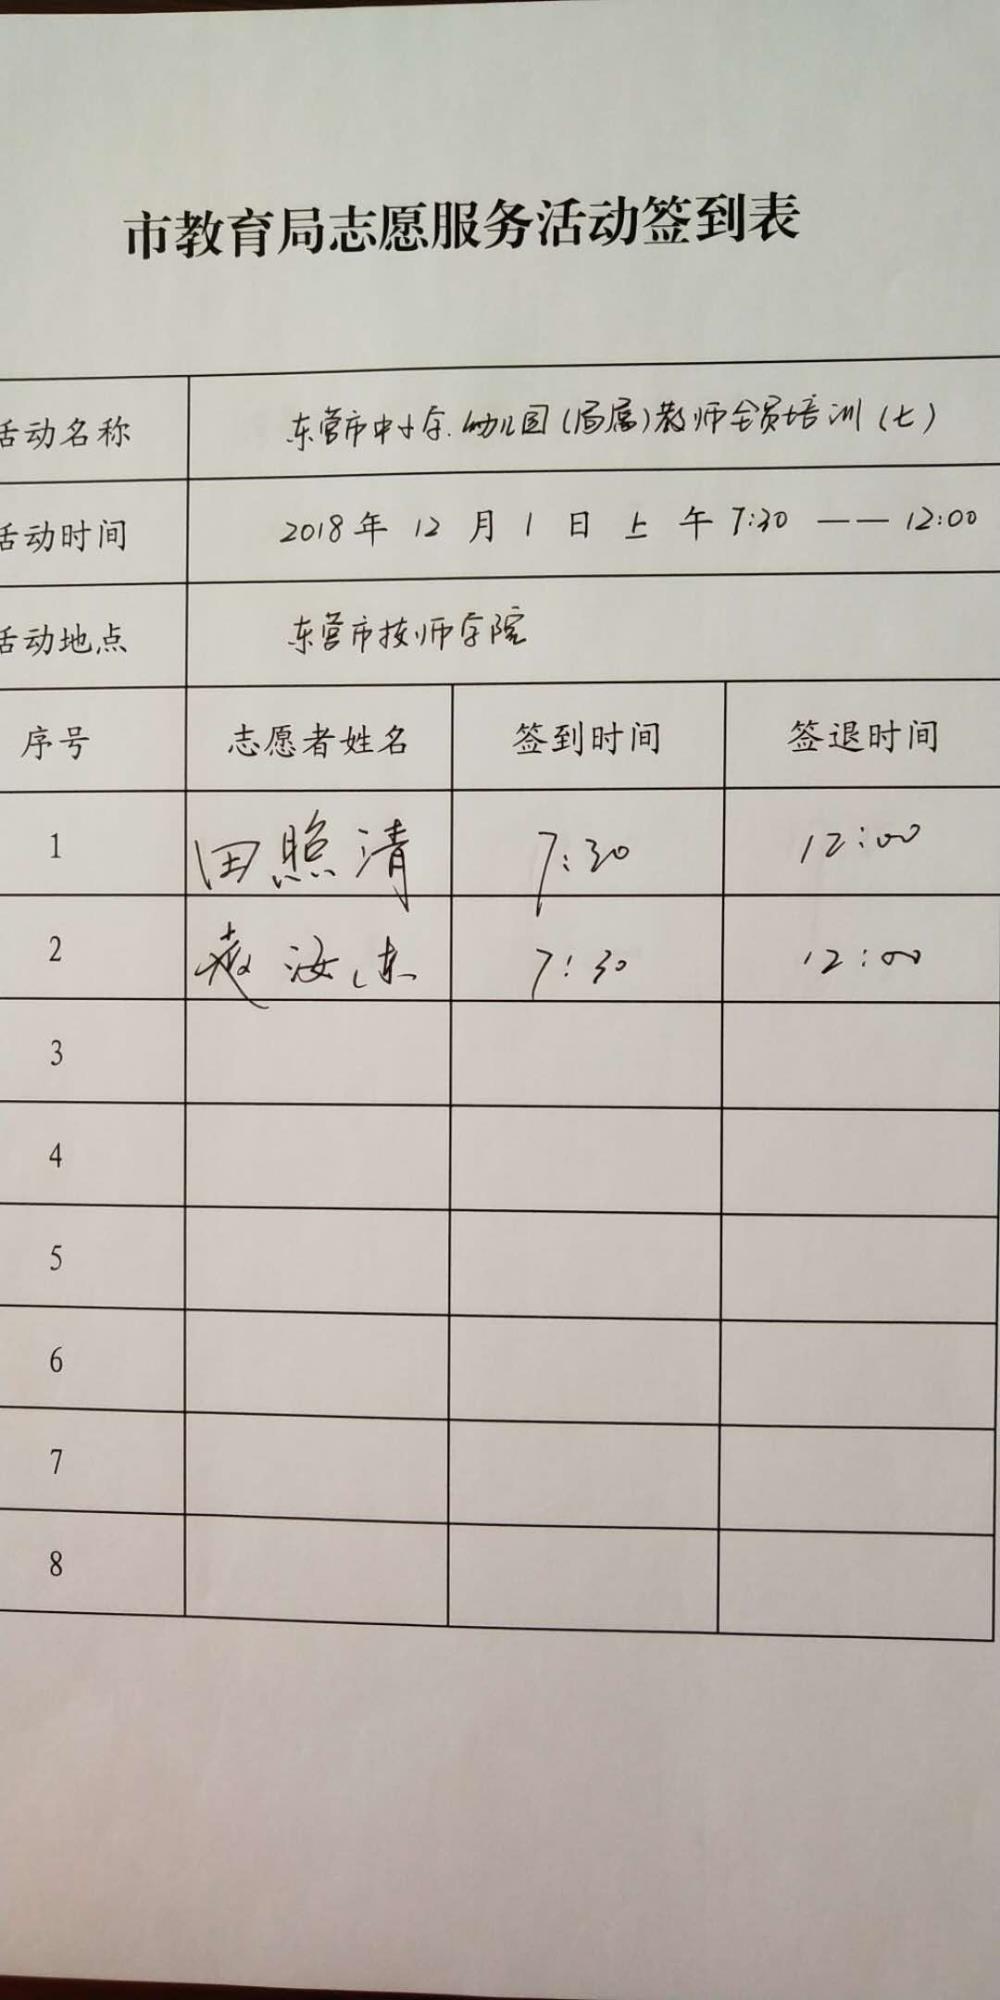 市教育局志愿服务活动签到表
活动名称 东营市中小学.幼儿园(局属)教师全员培训(七)
活动时间 2018年 12 月 1 日 上 午 7:30 —— 12:00
活动地点 东营市技师学院
序号 志愿者姓名 签到时间 签退时间
1 田照清 7:30 12:00
2 汝 7:30 12:00
3
4
5
6
7
8